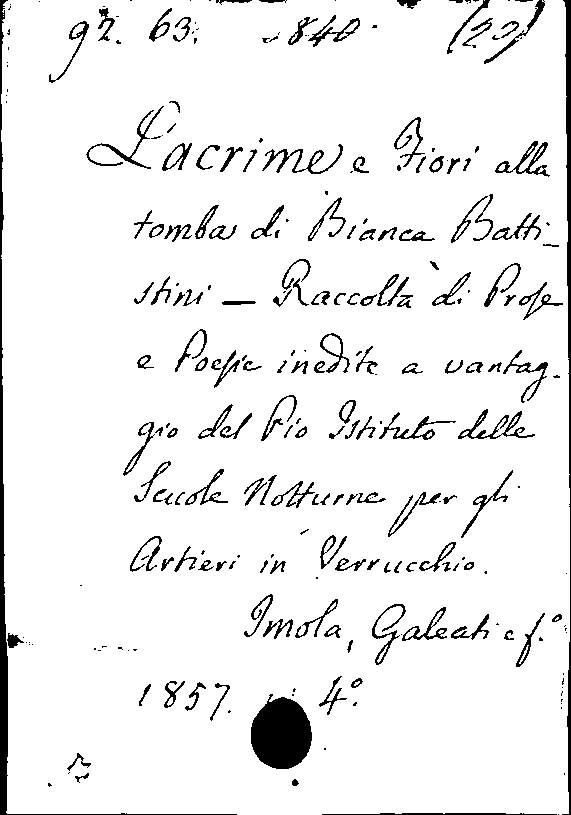 92. 63. 840. (20)
Lacrime e Fiori alla
tomba di Bianca Batti-
stini — Raccolta di Prose
e Poesie inedite a vantag-
gio del Pio Istituto delle
Scuole Notturne per gli
Artieri in Verrucchio.
Imola, Galeati e f.º
1857. in 4º.